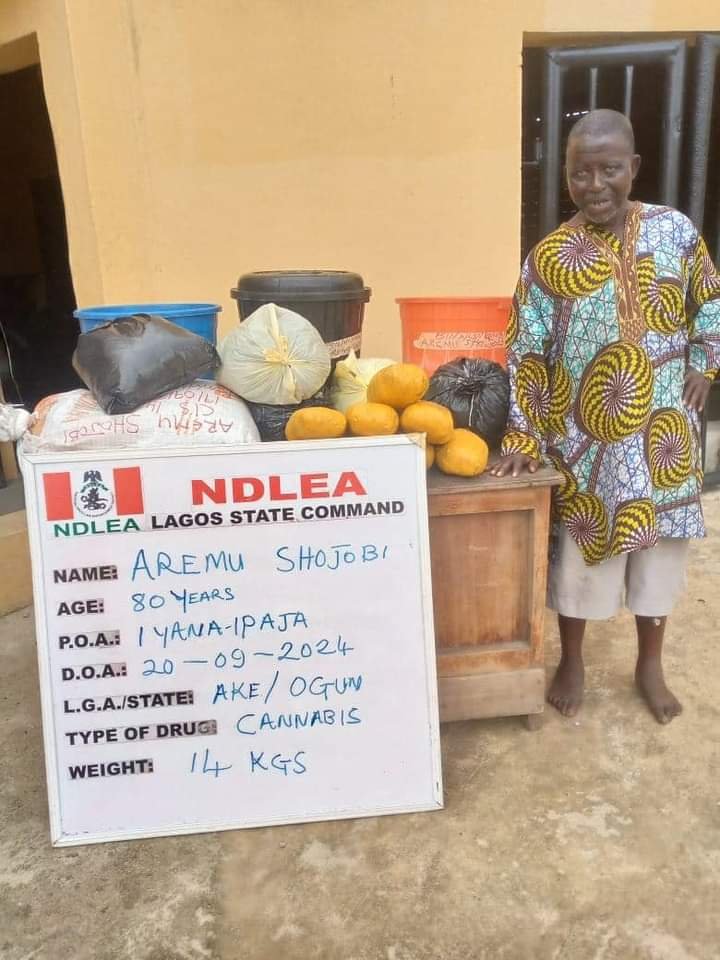 AREMU SHOJOBI
AREMU
SHOJOBI
NDLEA
NDLEA
LAGOS STATE COMMAND
NAME: AREMU SHOJOBI
AGE: 80 YEARS
P.O.A.: IYANA-IPAJA
D.O.A.: 20-09-2024
L.G.A./STATE: AKE/OGUN
TYPE OF DRUG: CANNABIS
WEIGHT: 14 KGS